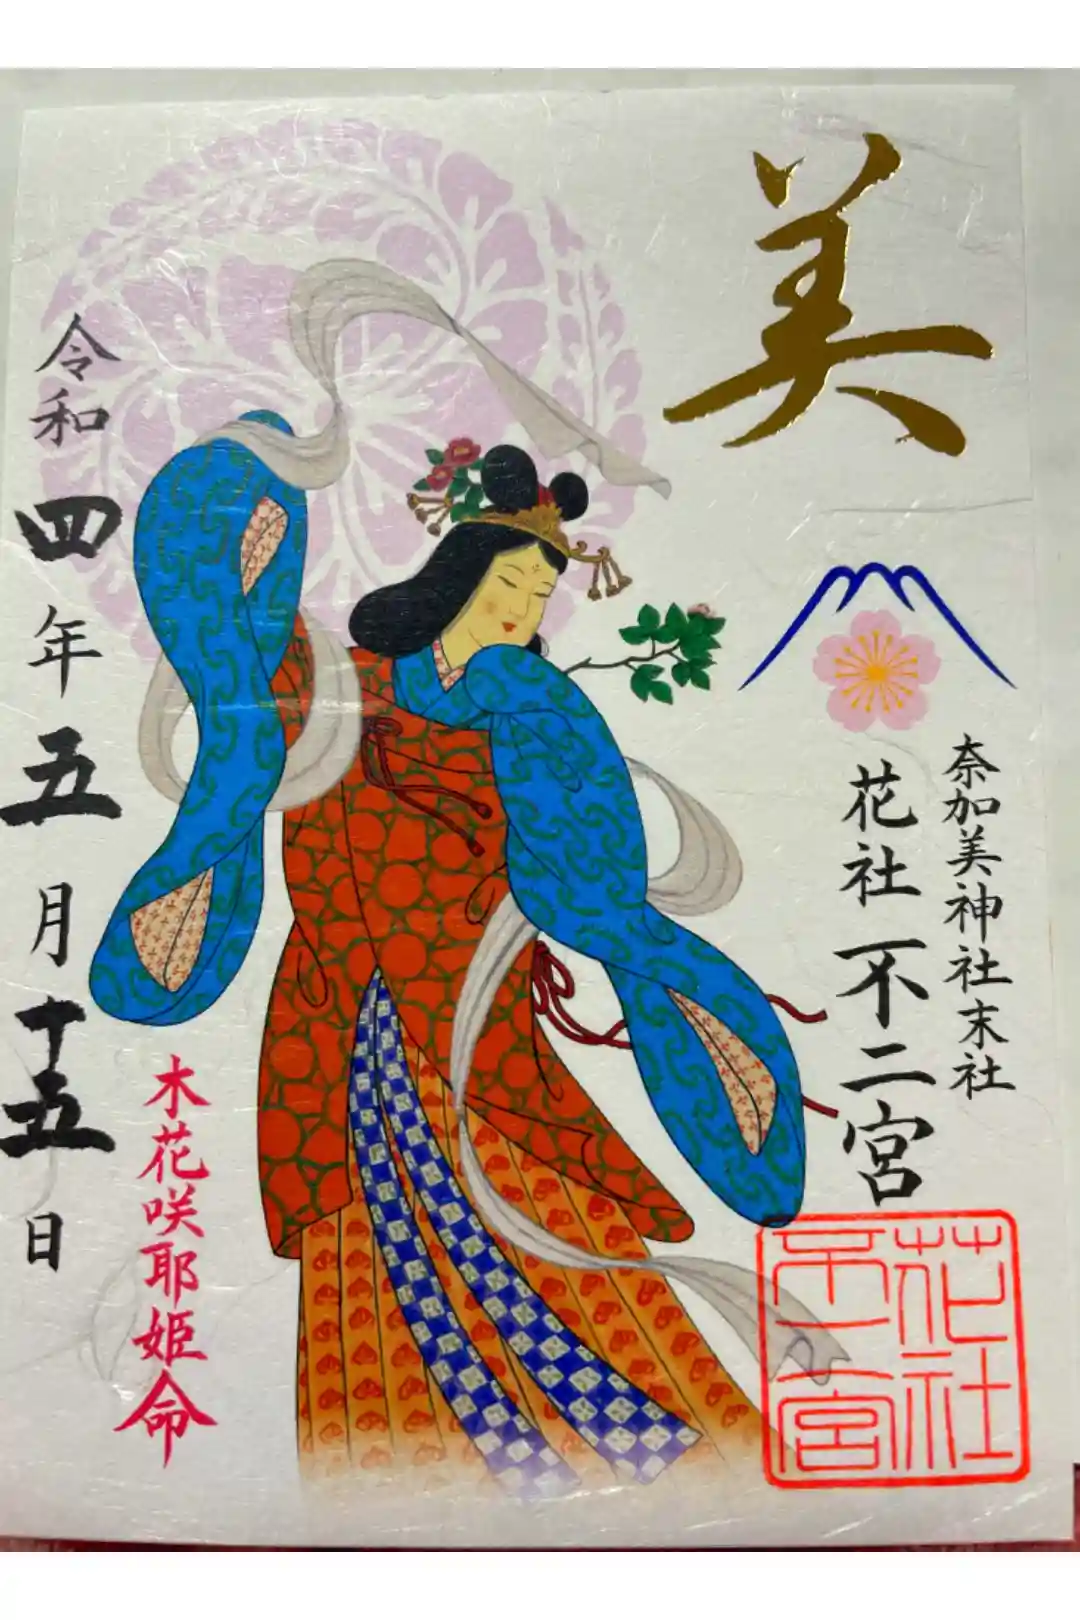 美
奈加美神社末社
花社不二宮
花社
不二宮
木花咲耶姫命
令和四年五月十五日